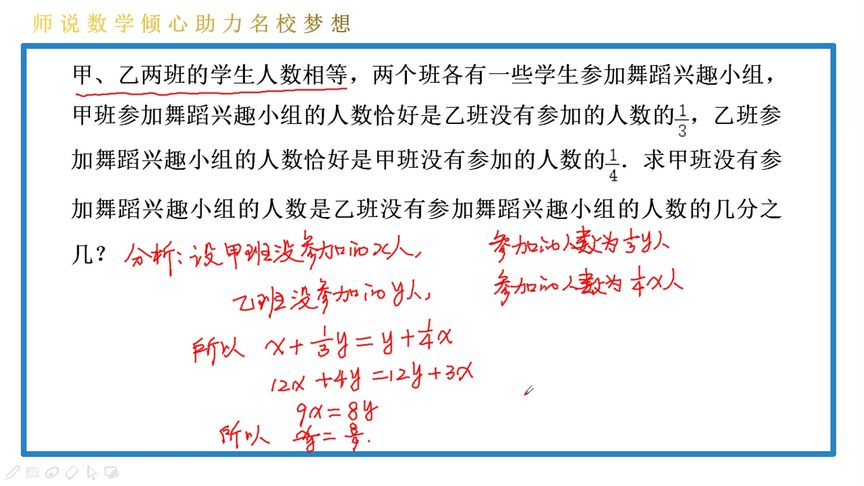 师说数学倾心助力名校梦想
甲、乙两班的学生人数相等，两个班各有一些学生参加舞蹈兴趣小组，
甲班参加舞蹈兴趣小组的人数恰好是乙班没有参加的人数的1/3，乙班参
加舞蹈兴趣小组的人数恰好是甲班没有参加的人数的1/4．求甲班没有参
加舞蹈兴趣小组的人数是乙班没有参加舞蹈兴趣小组的人数的几分之
几？ 分析：设甲班没参加的x人， 参加的人数为1/3y人
乙班没参加的y人， 参加的人数为1/4x人
所以 x+1/3y=y+1/4x
12x+4y=12y+3x
9x=8y
所以 x/y=8/9.